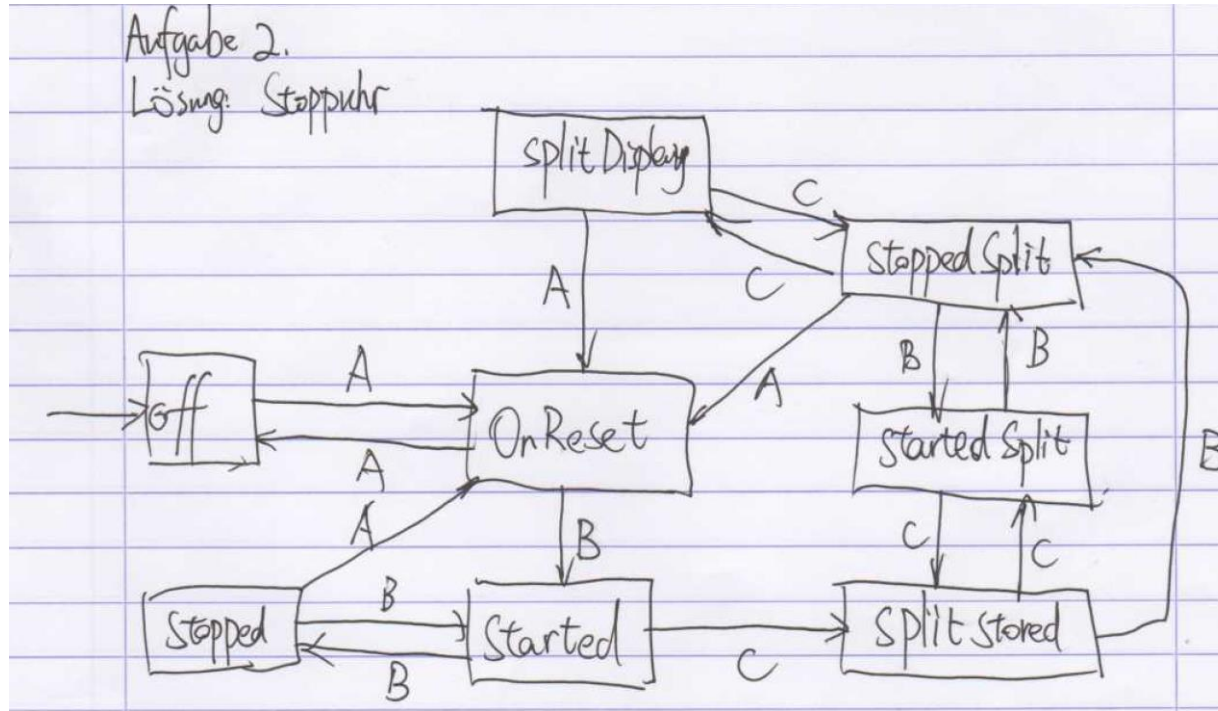 Aufgabe 2.
Lösung: Stoppuhr
splitDisplay
C
StoppedSplit
C
A
B
B
A
off
A
OnReset
A
StartedSplit
B
A
B
C
C
Stopped
B
Started
SplitStored
B
C